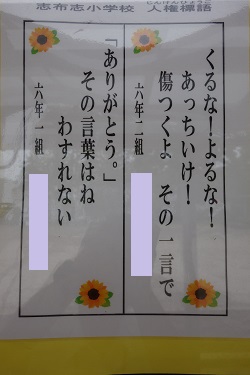 志布志小学校　人権標語
じんけんひょうご
くるな！よるな！
あっちいけ！
傷つくよ　その一言で
六年二組
「ありがとう。」
その言葉はね
わすれない
六年一組